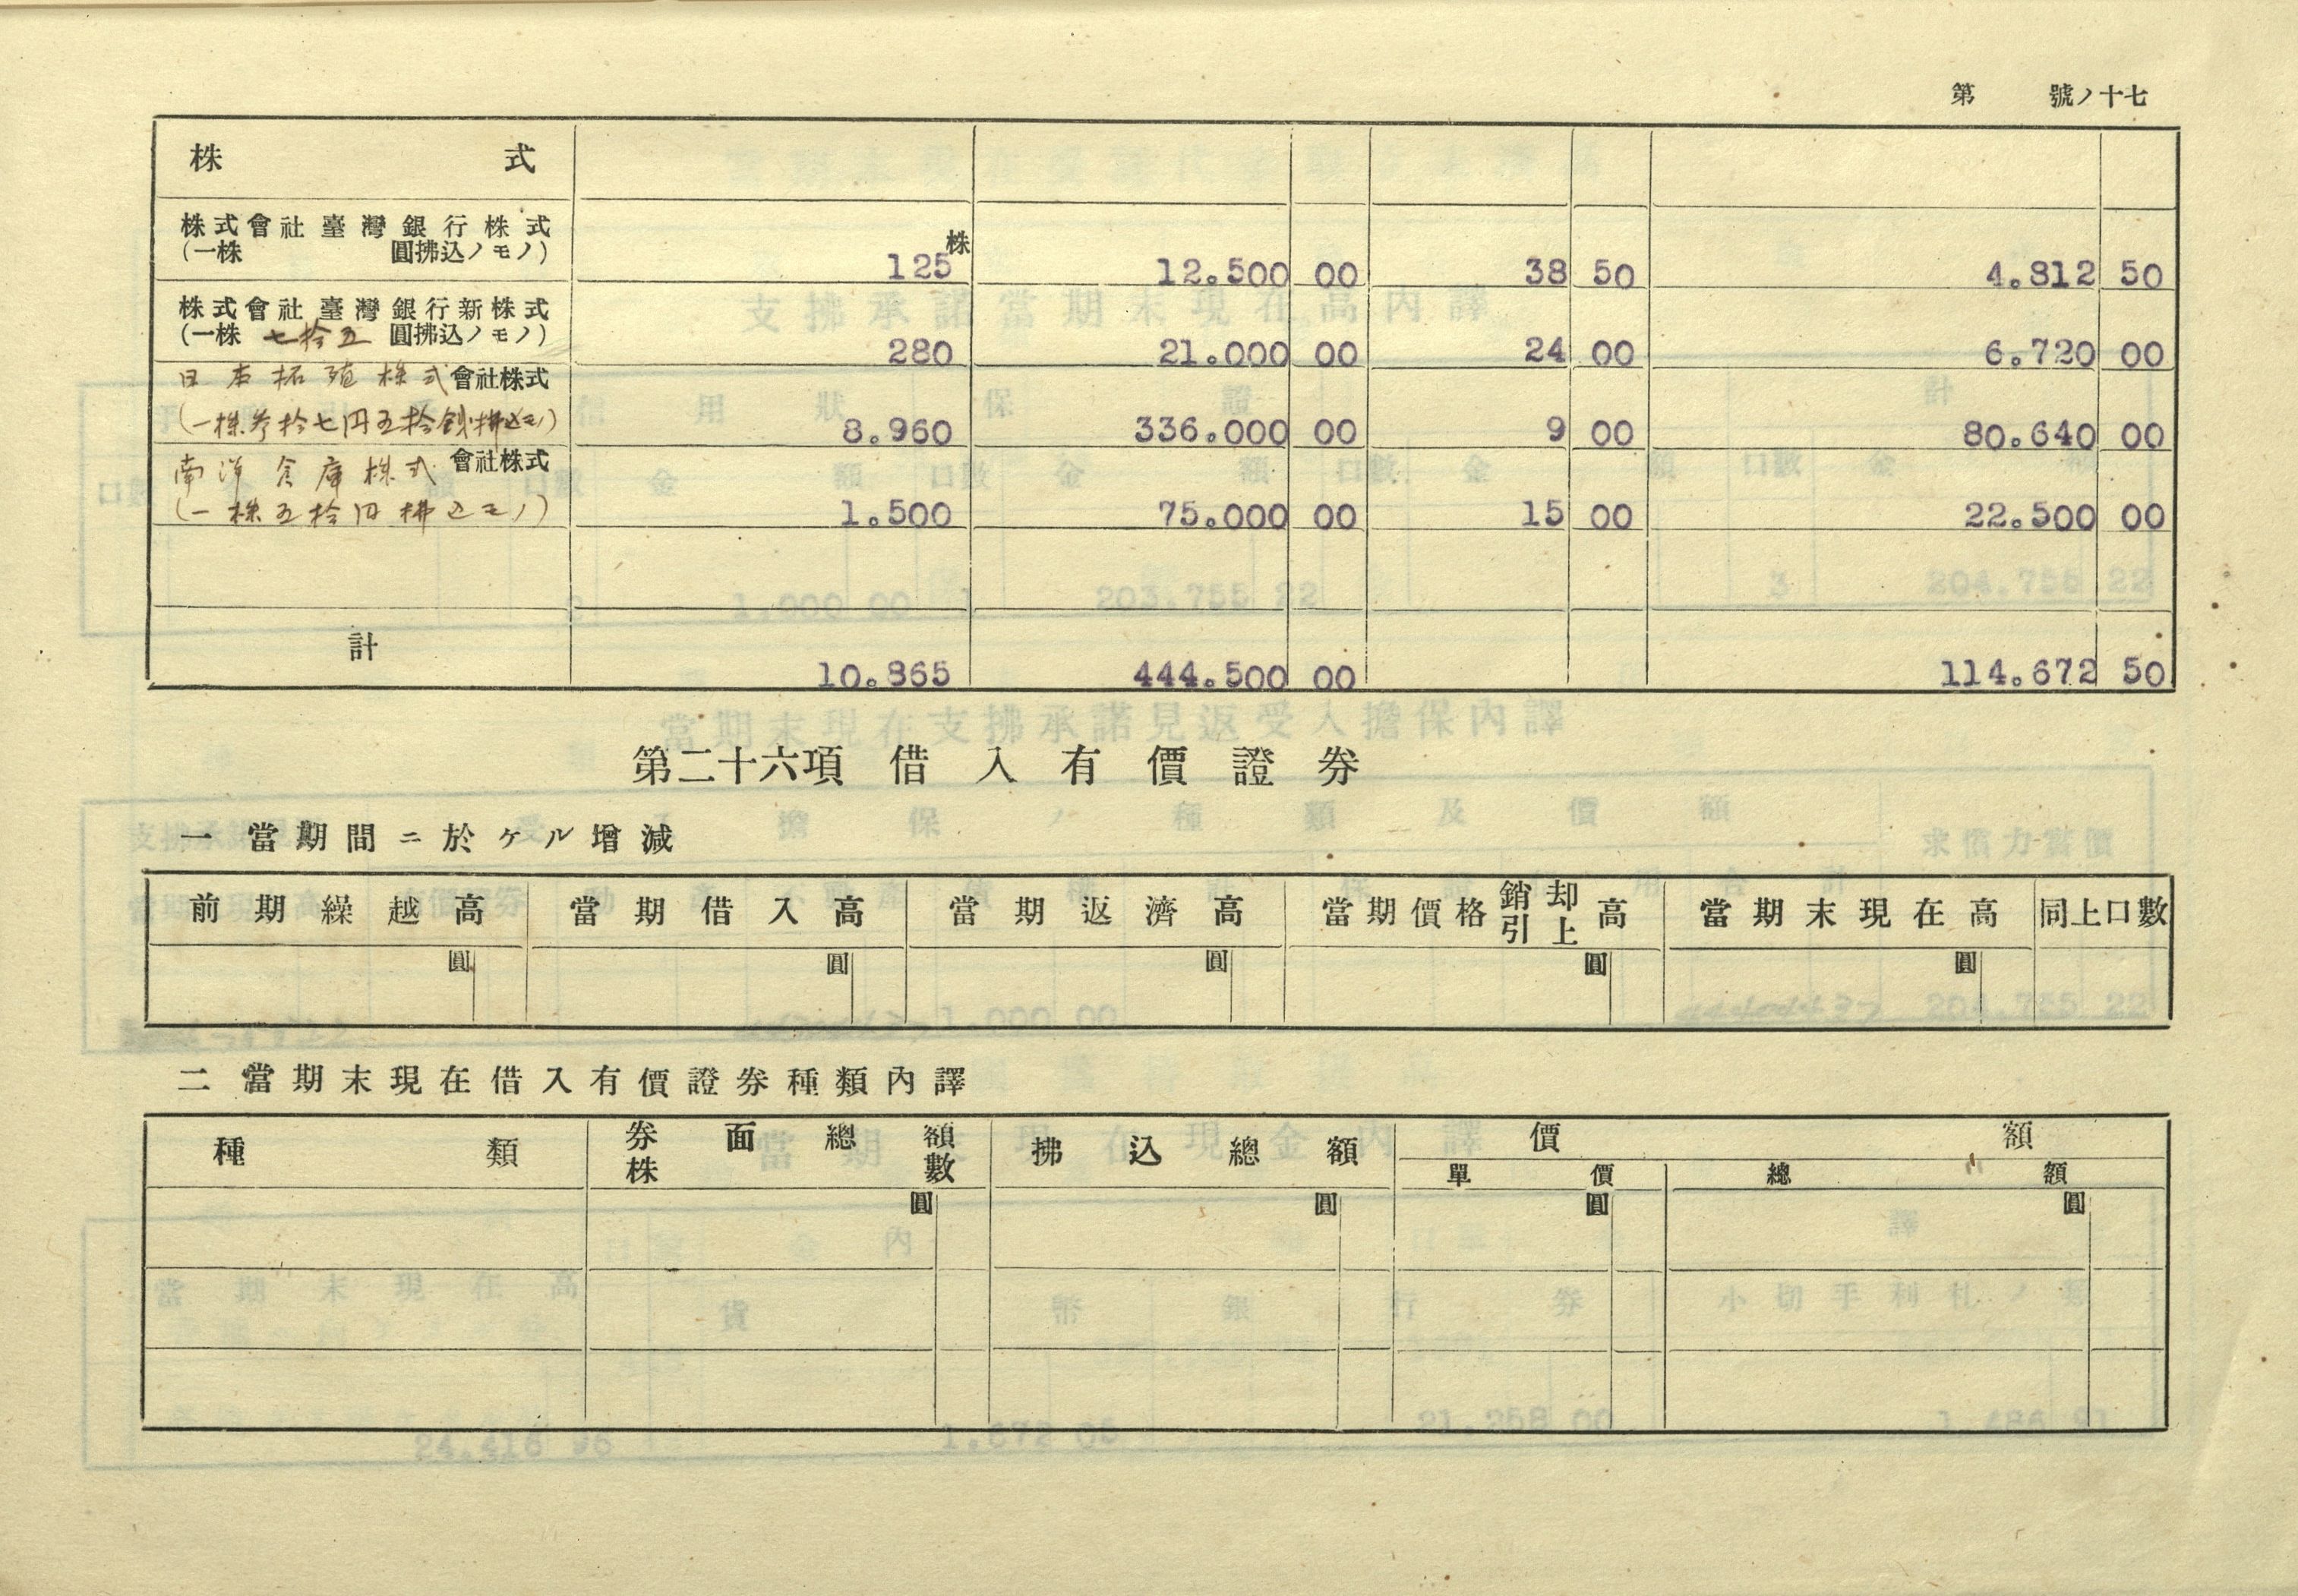 第 號ノ十七
株 式
株式會社臺灣銀行株式
(一株 圓拂込ノモノ) 125株 12.500 00 38 50 4.812 50
株式會社臺灣銀行新株式
(一株 七拾五 圓拂込ノモノ) 280 21.000 00 24 00 6.720 00
日本拓殖株式會社株式
(一株參拾七円五拾錢拂込モノ) 8.960 336.000 00 9 00 80.640 00
南洋倉庫株式會社株式
(一株五拾円拂込モノ) 1.500 75.000 00 15 00 22.500 00
計 10.865 444.500 00 114.672 50
第二十六項 借入有價證券
一 當期間ニ於ケル增減
前期繰越高 當期借入高 當期返濟高 當期價格銷却引上高 當期末現在高 同上口數
圓 圓 圓 圓 圓
二 當期末現在借入有價證券種類內譯
種類 券面總額 拂込總額 價額
株數 單價 總額
圓 圓 圓 圓